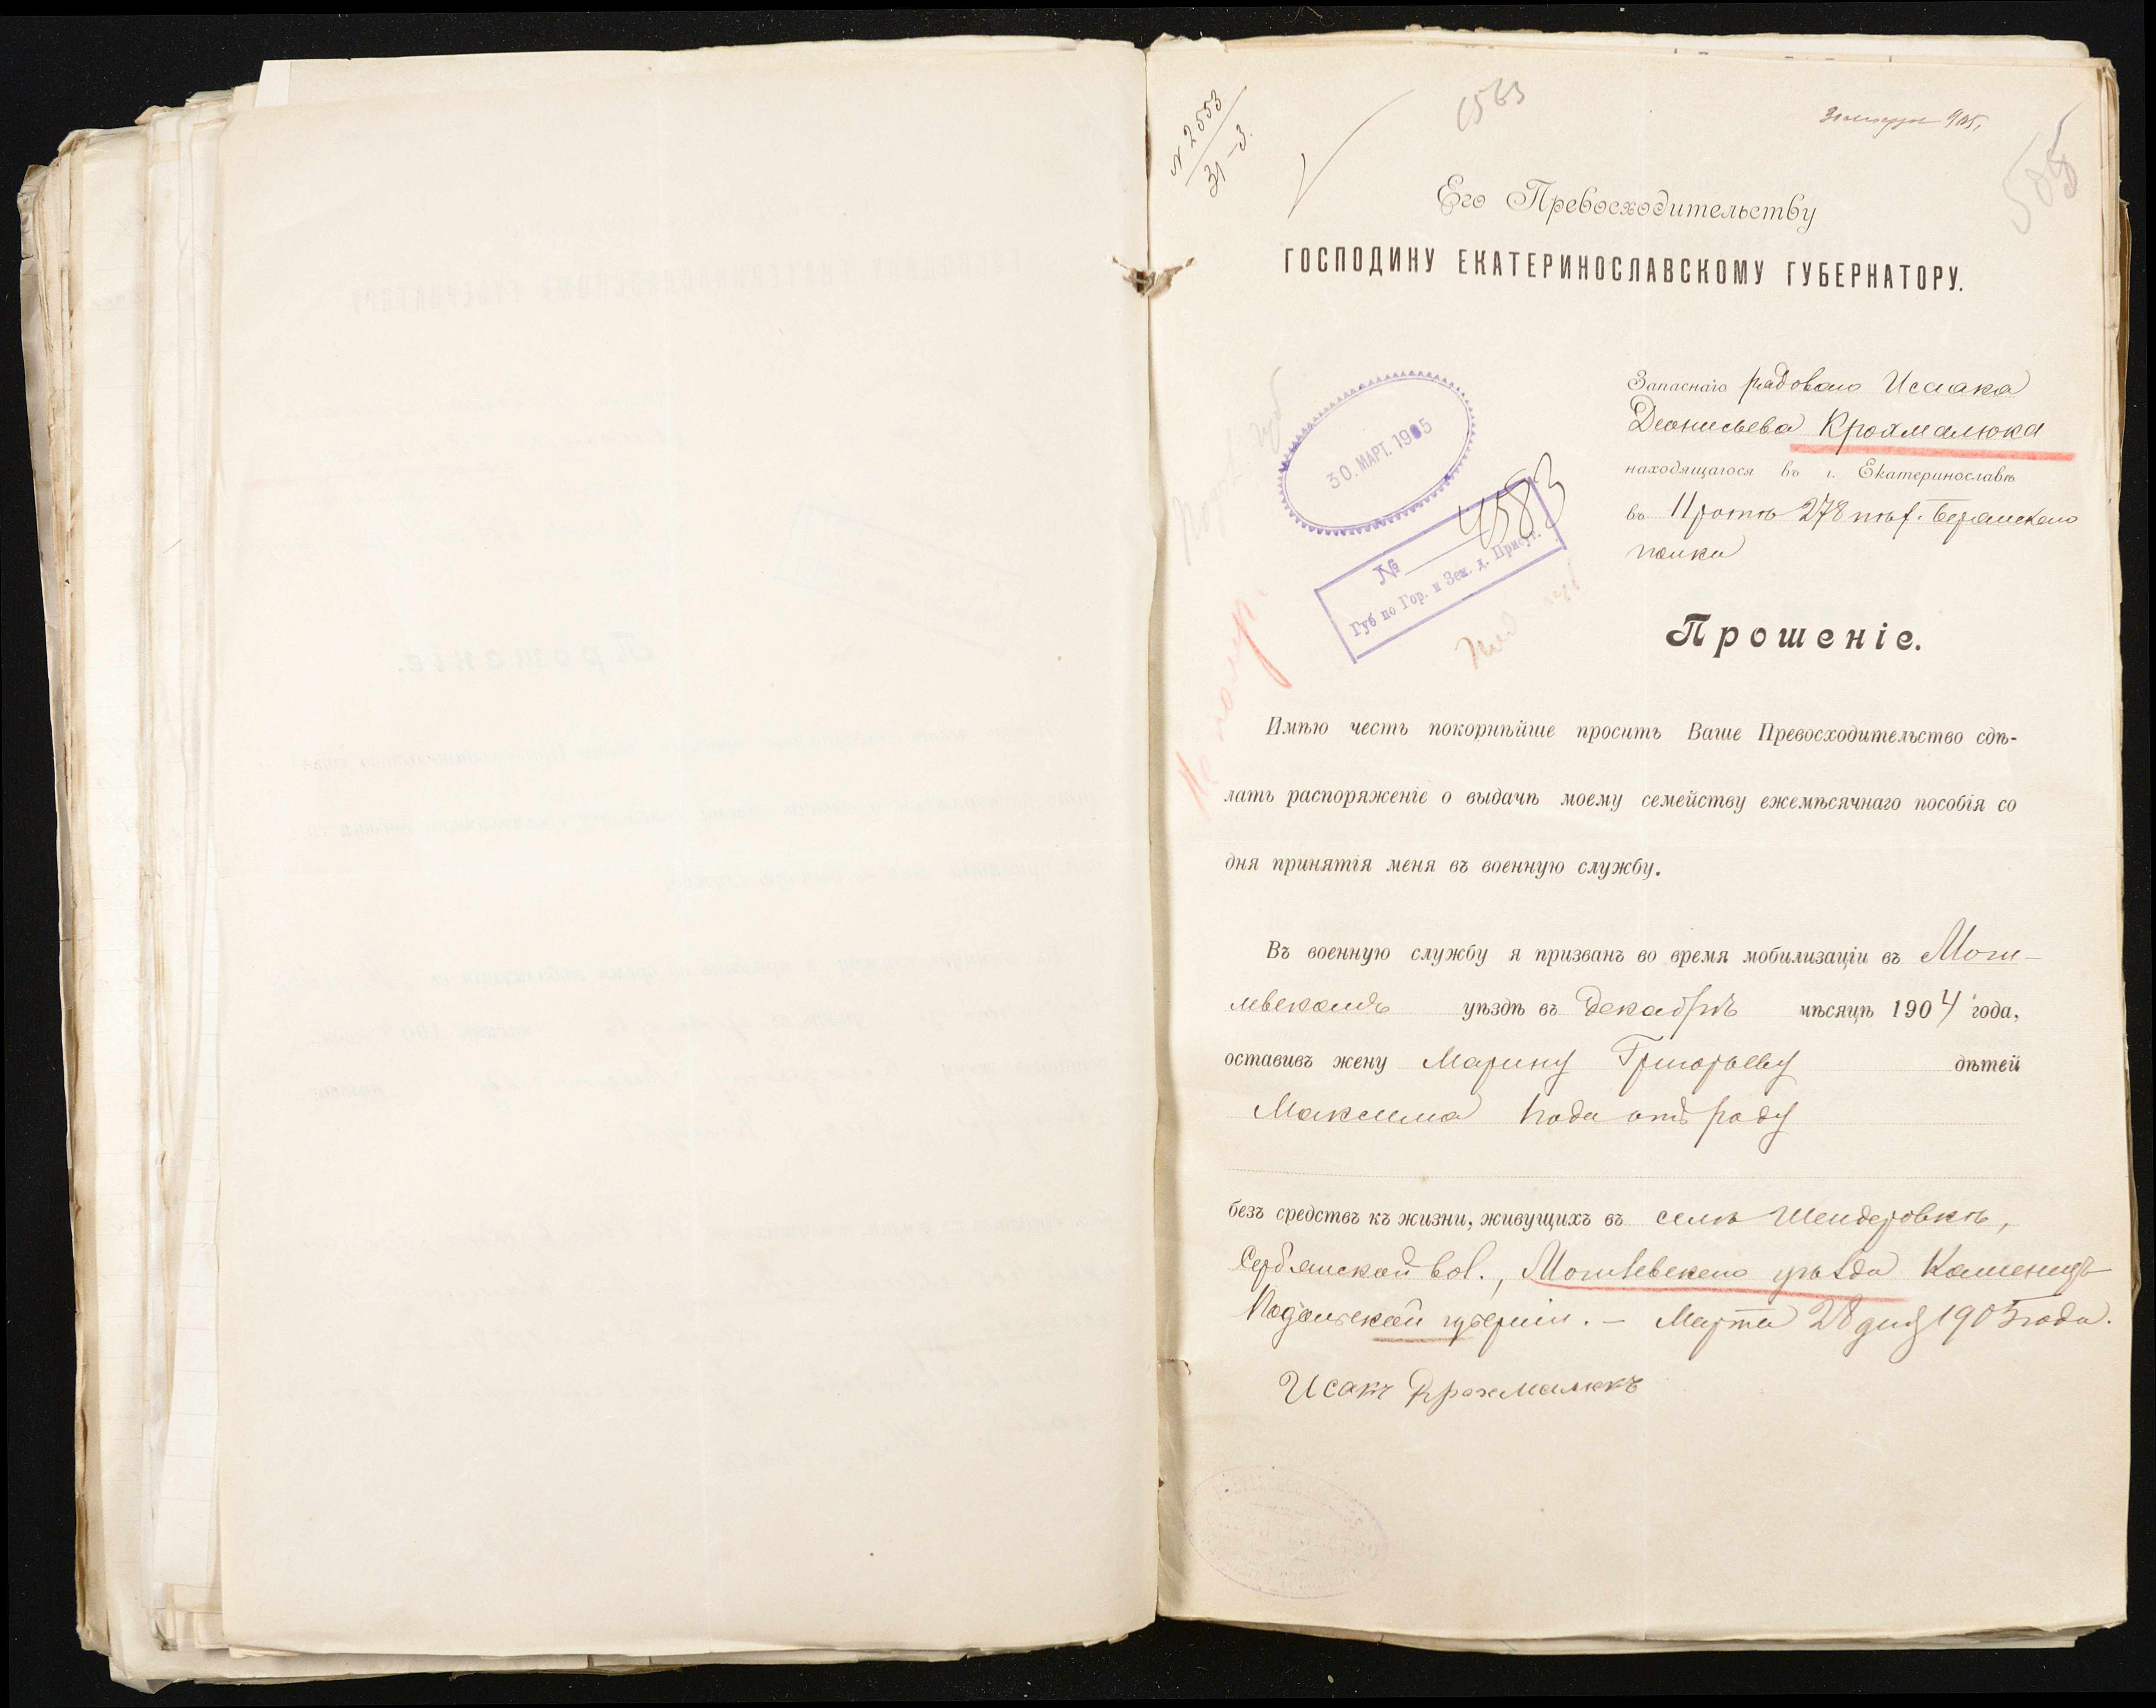 № 2553
31-3.
1563
905
508
Его Превосходительству
ГОСПОДИНУ ЕКАТЕРИНОСЛАВСКОМУ ГУБЕРНАТОРУ.
Запаснаго рядового Исаака
Деонисьева Крохмалюка
находящагося въ г. Екатеринославѣ
въ 11 ротѣ 278 пѣх. Берамскаго
полка
30. МАРТ. 1905
№ 4583
Губ по Гор. и Зем. д. Присут.
Прошеніе.
Имѣю честь покорнѣйше просить Ваше Превосходительство сдѣ-
лать распоряженіе о выдачѣ моему семейству ежемѣсячнаго пособія со
дня принятія меня въ военную службу.
Въ военную службу я призванъ во время мобилизаціи въ Моги-
левскомъ уѣздѣ въ Декабрѣ мѣсяцѣ 1904 года,
оставивъ жену Марину Григорьеву дѣтей
Максима 1 года отъ роду
безъ средствъ къ жизни, живущихъ въ селѣ Шендеровкѣ,
Сербянской вол., Могилевскаго уѣзда Каменецъ
Подольской губерніи. – Марта 28 дня 1905 года.
Исакъ Крохмалюкъ